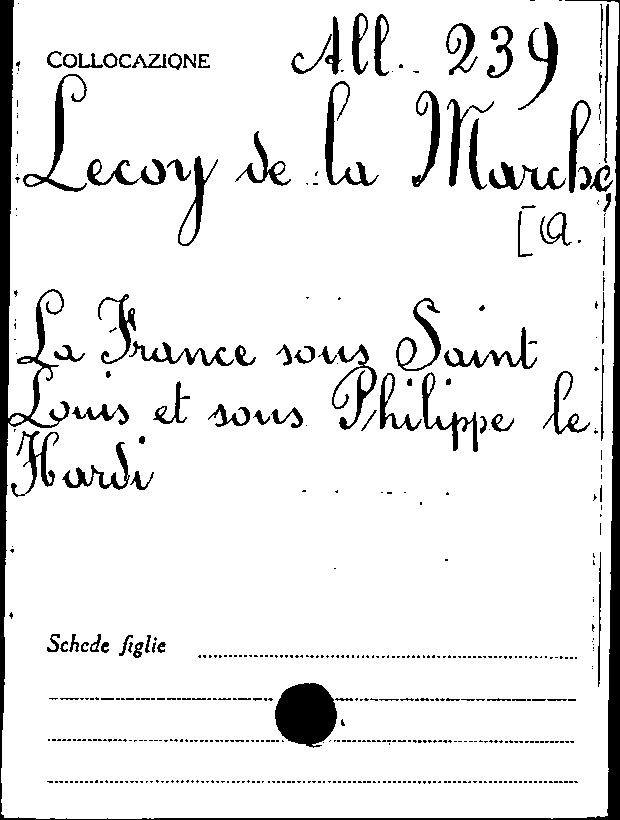 COLLOCAZIONE All. 239
Lecoy de la Marche,
[A.
La France sous Saint
Louis et sous Philippe le
Hardi
Schede figlie